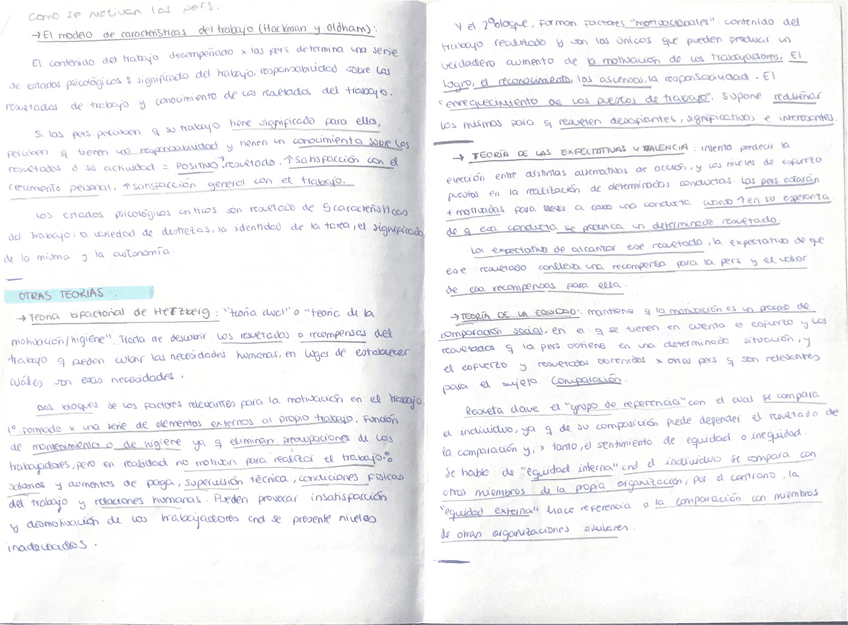 como se motivan las pers.
→ El modelo de características del trabajo (Hackman y Oldham):
El contenido del trabajo desempeñado x las pers determina una serie
de estados psicológicos: significado del trabajo, responsabilidad sobre los
resultados de trabajo y conocimiento de los resultados del trabajo.
Si las pers. perciben q su trabajo tiene significado para ella,
perciben q tienen una responsabilidad y tienen un conocimiento sobre los
resultados d su actividad = POSITIVO resultado. ↑ satisfacción con el
crecimiento personal, ↑ satisfacción general con el trabajo.
Los estados psicológicos críticos son resultado de 5 características
del trabajo: la variedad de destrezas, la identidad de la tarea, el significado
de la misma y la autonomía.
OTRAS TEORÍAS:
→ Teoría bifactorial de Hertzberg: "teoría dual" o "teoría de la
motivación/higiene". Trata de descubrir los resultados o recompensas del
trabajo q pueden cubrir las necesidades humanas, en lugar de establecer
cuáles son esas necesidades.
Dos bloques de los factores relevantes para la motivación en el trabajo.
1º formado x una serie de elementos externos al propio trabajo. Función
de mantenimiento o de higiene ya q eliminan preocupaciones de los
trabajadores, pero en realidad no motivan para realizar el trabajo:
salarios y aumentos de paga, supervisión técnica, condiciones físicas
del trabajo y relaciones humanas. Pueden provocar insatisfacción
y desmotivación de los trabajadores cnd se presente niveles
inadecuados.
Y el 2º bloque, forman factores "motivacionales": contenido del
trabajo realizado y son los únicos que pueden producir un
verdadero aumento de la motivación de los trabajadores. El
logro, el reconocimiento, los ascensos, la responsabilidad. El
"enriquecimiento de los puestos de trabajo". Supone rediseñar
los mismos para q resulten desafiantes, significativos e interesantes.
→ TEORÍA DE LAS EXPECTATIVAS Y VALENCIA: intenta predecir la
elección entre distintas alternativas de acción, y los niveles de esfuerzo
puestos en la realización de determinadas conductas. Las pers estarán
+ motivadas para llevar a cabo una conducta cuanto ↑ en su esperanza
de q esa conducta se produzca un determinado resultado.
Las expectativas de alcanzar ese resultado, la expectativa de que
ese resultado conlleva una recompensa para la pers y el valor
de esa recompensas para ella.
→ TEORÍA DE LA EQUIDAD: mantiene q la motivación es un proceso de
comparación social, en el q se tienen en cuenta el esfuerzo y los
resultados q la pers obtiene en una determinada situación, y
el esfuerzo y resultados obtenidos x otras pers q son relevantes
para el sujeto. Comparación.
Resulta clave el "grupo de referencia" con el cual se compara
el individuo, ya q de su composición puede depender el resultado de
la comparación y, x tanto, el sentimiento de equidad o inequidad.
Se habla de "equidad interna" cnd el individuo se compara con
otros miembros de la propia organización, por el contrario, la
"equidad externa" hace referencia a la comparación con miembros
de otras organizaciones similares.